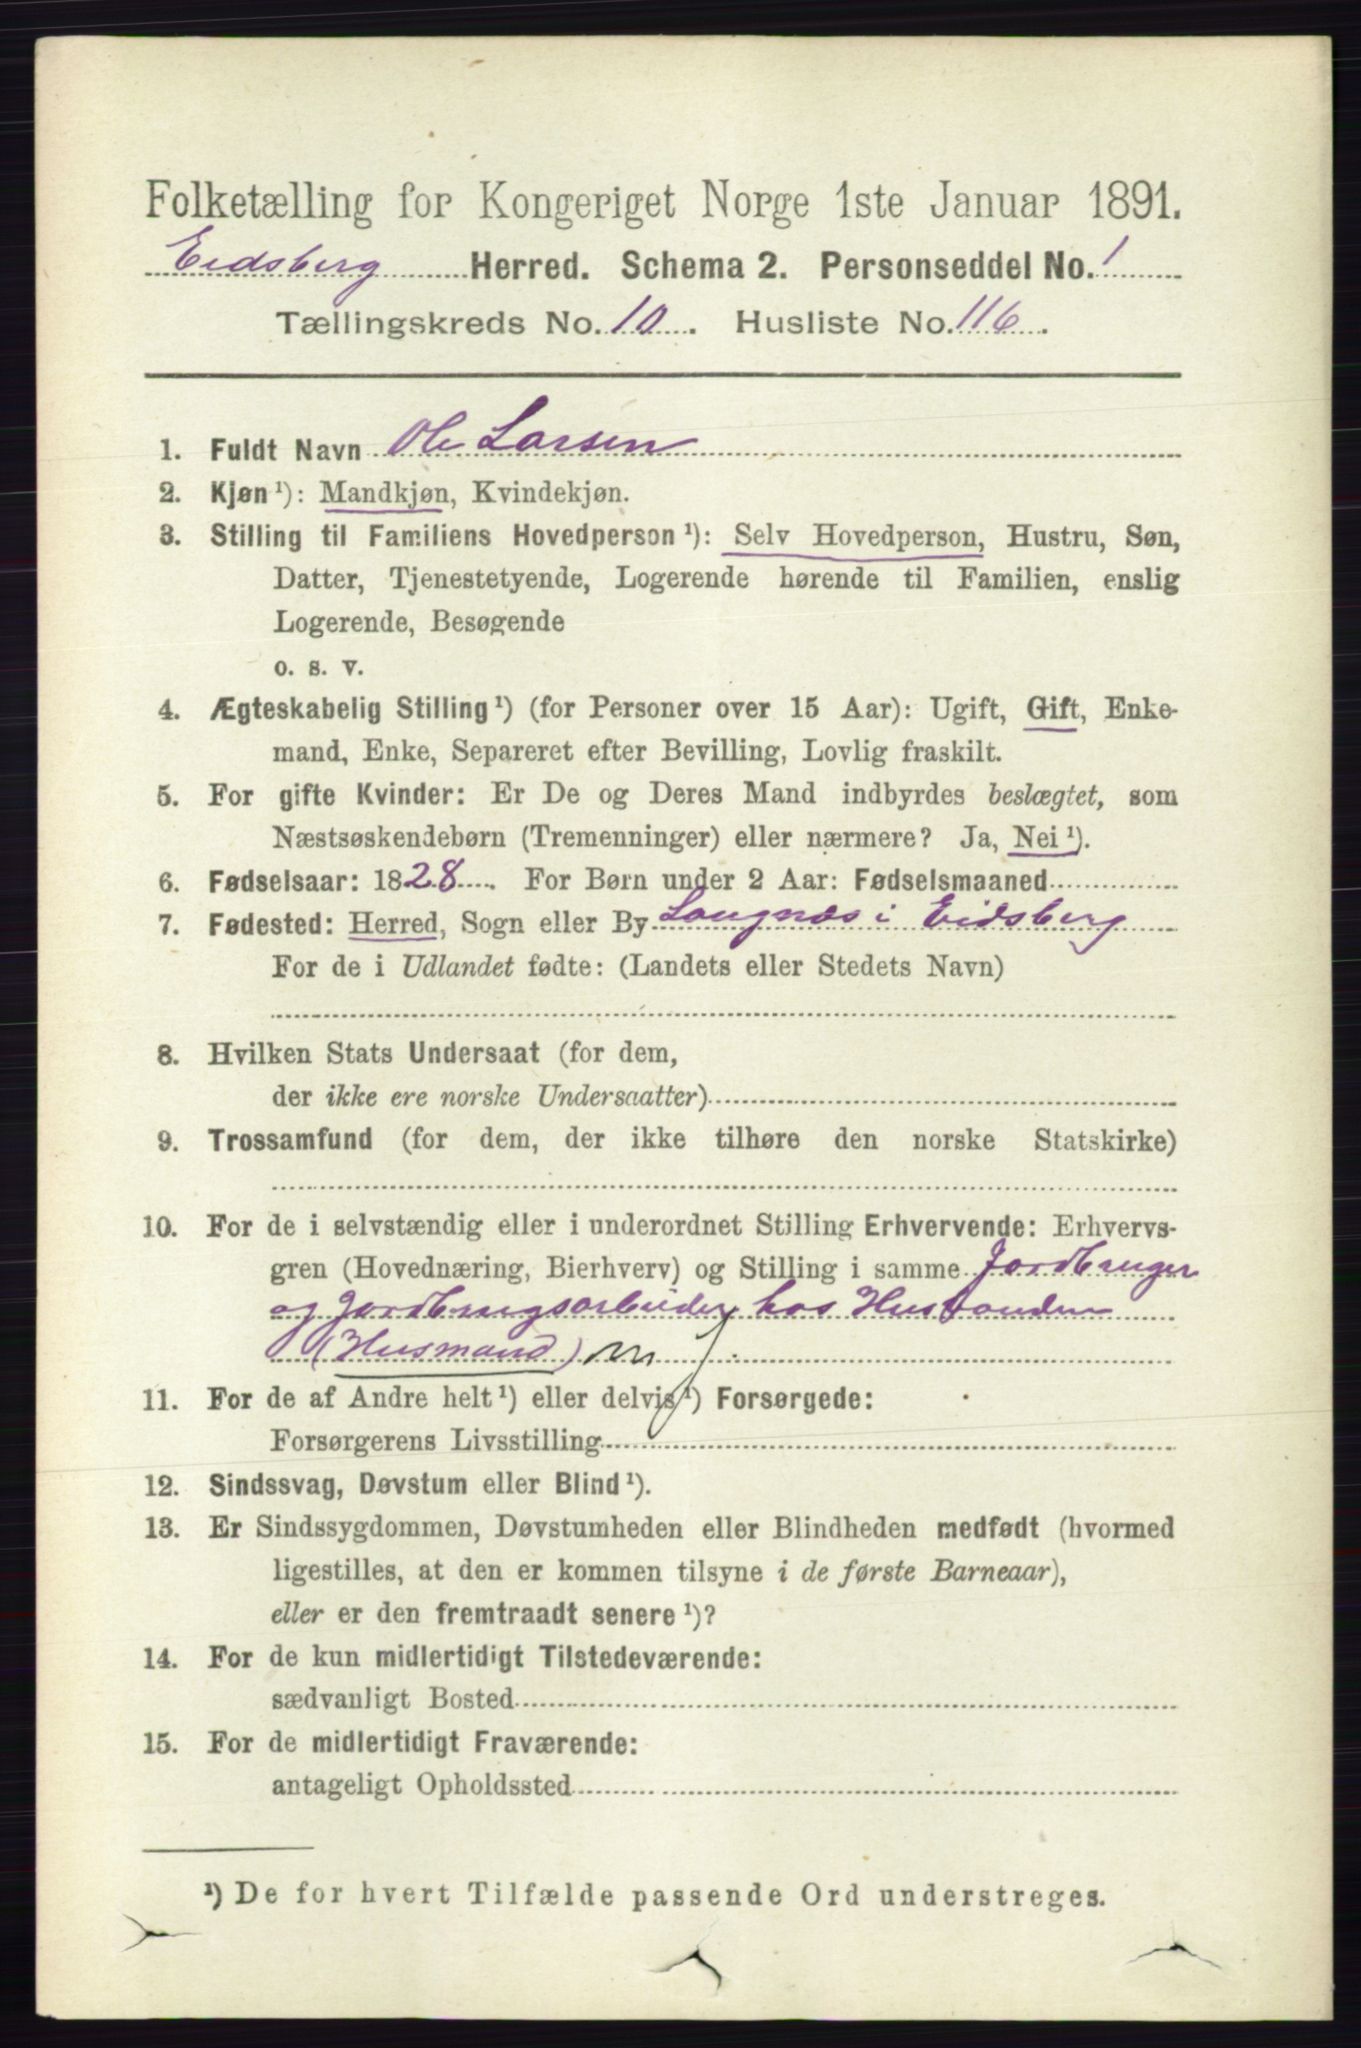 Folketælling for Kongeriget Norge 1ste Januar 1891.
Eidsberg Herred. Schema 2. Personseddel No. 1
Tællingskreds No. 10. Husliste No. 116.
1. Fuldt Navn Ole Larsen
2. Kjøn¹): Mandkjøn, Kvindekjøn.
3. Stilling til Familiens Hovedperson¹): Selv Hovedperson, Hustru, Søn,
Datter, Tjenestetyende, Logerende hørende til Familien, enslig
Logerende, Besøgende
o. s. v.
4. Ægteskabelig Stilling¹) (for Personer over 15 Aar): Ugift, Gift, Enke-
mand, Enke, Separeret efter Bevilling, Lovlig fraskilt.
5. For gifte Kvinder: Er De og Deres Mand indbyrdes beslægtet, som
Næstsøskendebørn (Tremenninger) eller nærmere? Ja, Nei¹).
6. Fødselsaar: 1828. For Børn under 2 Aar: Fødselsmaaned
7. Fødested: Herred, Sogn eller By Langnæs i Eidsberg
For de i Udlandet fødte: (Landets eller Stedets Navn)
8. Hvilken Stats Undersaat (for dem,
der ikke ere norske Undersaatter)
9. Trossamfund (for dem, der ikke tilhøre den norske Statskirke)
10. For de i selvstændig eller i underordnet Stilling Erhvervende: Erhvervs-
gren (Hovednæring, Bierhverv) og Stilling i samme Jordbruger
og Jordbrugsarbeider hos Husbonden
(Husmand) m
11. For de af Andre helt¹) eller delvis¹) Forsørgede:
Forsørgerens Livsstilling
12. Sindssvag, Døvstum eller Blind¹).
13. Er Sindssygdommen, Døvstumheden eller Blindheden medfødt (hvormed
ligestilles, at den er kommen tilsyne i de første Barneaar),
eller er den fremtraadt senere¹)?
14. For de kun midlertidigt Tilstedeværende:
sædvanligt Bosted
15. For de midlertidigt Fraværende:
antageligt Opholdssted
¹) De for hvert Tilfælde passende Ord understreges.